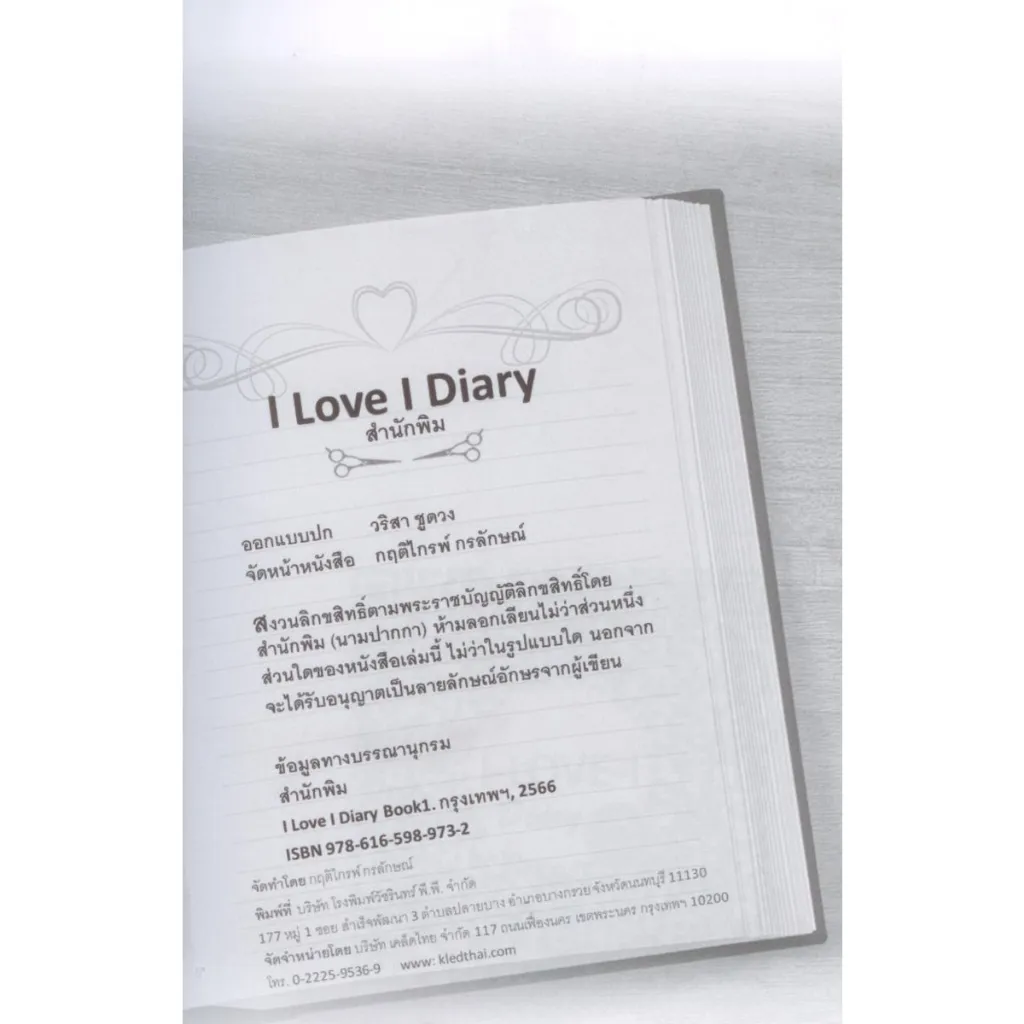 I Love I Diary
สำนักพิม
ออกแบบปก วริสา ชูดวง
จัดหน้าหนังสือ กฤติไกรพ์ กรลักษณ์
สงวนลิกขสิทธิ์ตามพระราชบัญญัติลิกขสิทธิ์โดย
สำนักพิม (นามปากกา) ห้ามลอกเลียนไม่ว่าส่วนหนึ่ง
ส่วนใดของหนังสือเล่มนี้ ไม่ว่าในรูปแบบใด นอกจาก
จะได้รับอนุญาตเป็นลายลักษณ์อักษรจากผู้เขียน
ข้อมูลทางบรรณานุกรม
สำนักพิม
I Love I Diary Book1. กรุงเทพฯ, 2566
ISBN 978-616-598-973-2
จัดทำโดย กฤติไกรพ์ กรลักษณ์
พิมพ์ที่ บริษัท โรงพิมพ์วัชรินทร์ พี.พี. จำกัด
177 หมู่ 1 ซอย สำเร็จพัฒนา 3 ตำบลปลายบาง อำเภอบางกรวย จังหวัดนนทบุรี 11130
จัดจำหน่ายโดย บริษัท เคล็ดไทย จำกัด 117 ถนนเฟื่องนคร เขตพระนคร กรุงเทพฯ 10200
โทร. 0-2225-9536-9 www: kledthai.com